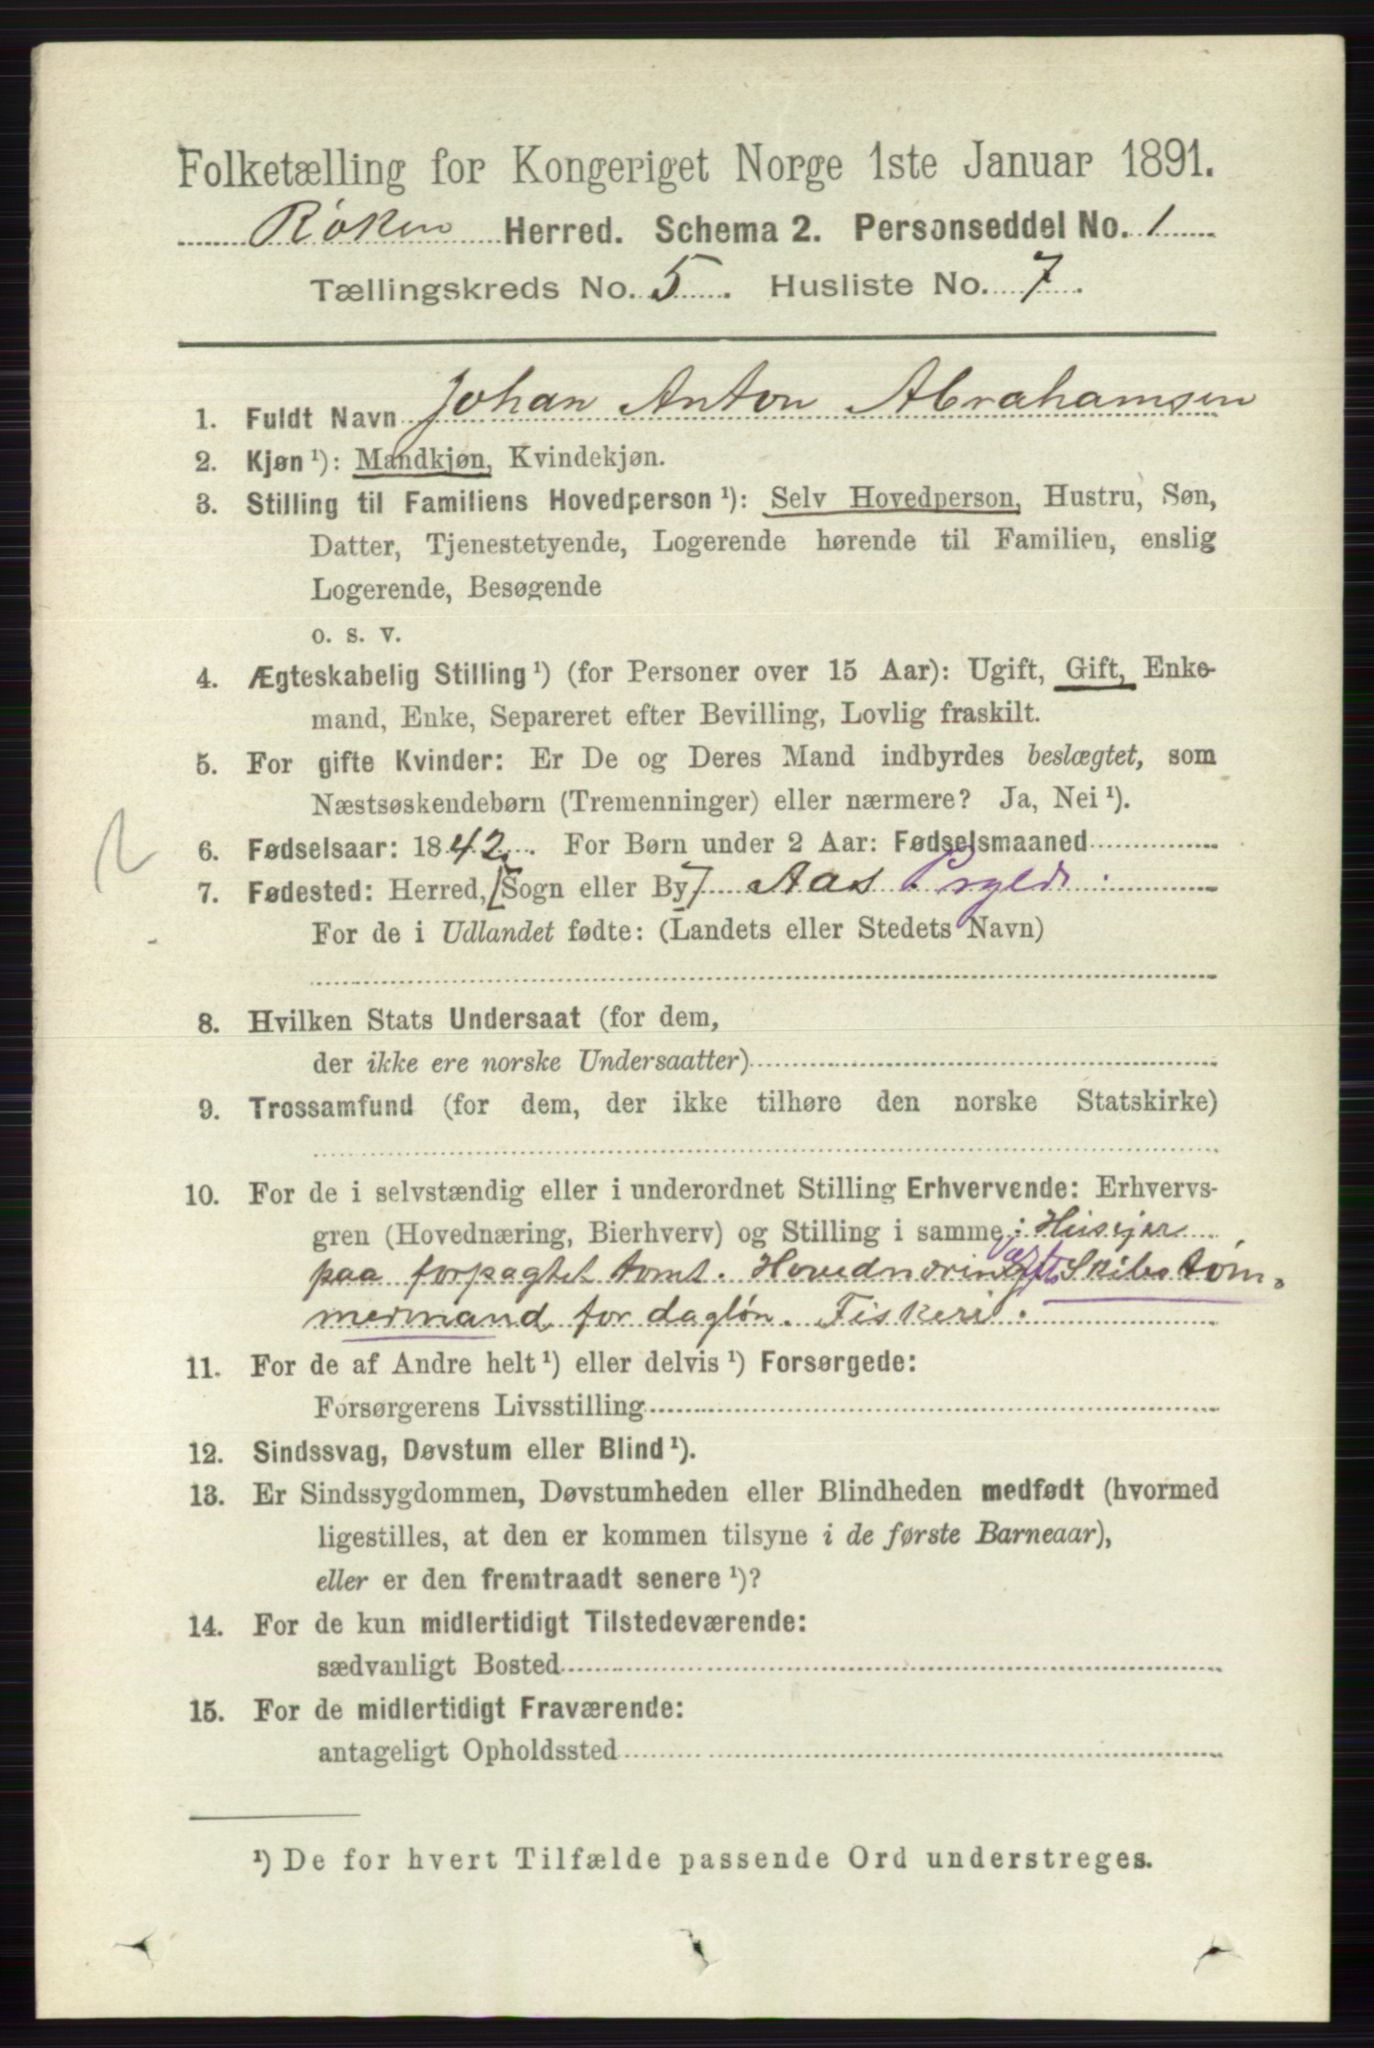 Folketælling for Kongeriget Norge 1ste Januar 1891.
Røken Herred. Schema 2. Personseddel No. 1
Tællingskreds No. 5. Husliste No. 7.
1. Fuldt Navn Johan Anton Abrahamsen
2. Kjøn ¹): Mandkjøn, Kvindekjøn.
3. Stilling til Familiens Hovedperson ¹): Selv Hovedperson, Hustru, Søn,
Datter, Tjenestetyende, Logerende hørende til Familien, enslig
Logerende, Besøgende
o. s. v.
4. Ægteskabelig Stilling ¹) (for Personer over 15 Aar): Ugift, Gift, Enke-
mand, Enke, Separeret efter Bevilling, Lovlig fraskilt.
5. For gifte Kvinder: Er De og Deres Mand indbyrdes beslægtet, som
Næstsøskendebørn (Tremenninger) eller nærmere? Ja, Nei ¹).
6. Fødselsaar: 1842. For Børn under 2 Aar: Fødselsmaaned
7. Fødested: Herred, [Sogn eller By] Aas Prgld.
For de i Udlandet fødte: (Landets eller Stedets Navn)
8. Hvilken Stats Undersaat (for dem,
der ikke ere norske Undersaatter)
9. Trossamfund (for dem, der ikke tilhøre den norske Statskirke)
10. For de i selvstændig eller i underordnet Stilling Erhvervende: Erhvervs-
gren (Hovednæring, Bierhverv) og Stilling i samme: Husejer
paa forpagtet tomt. Hovednæring Skibstøm-
mermand for dagløn. Fiskeri.
11. For de af Andre helt ¹) eller delvis ¹) Forsørgede:
Forsørgerens Livsstilling
12. Sindssvag, Døvstum eller Blind ¹).
13. Er Sindssygdommen, Døvstumheden eller Blindheden medfødt (hvormed
ligestilles, at den er kommen tilsyne i de første Barneaar),
eller er den fremtraadt senere ¹)?
14. For de kun midlertidigt Tilstedeværende:
sædvanligt Bosted
15. For de midlertidigt Fraværende:
antageligt Opholdssted
¹) De for hvert Tilfælde passende Ord understreges.